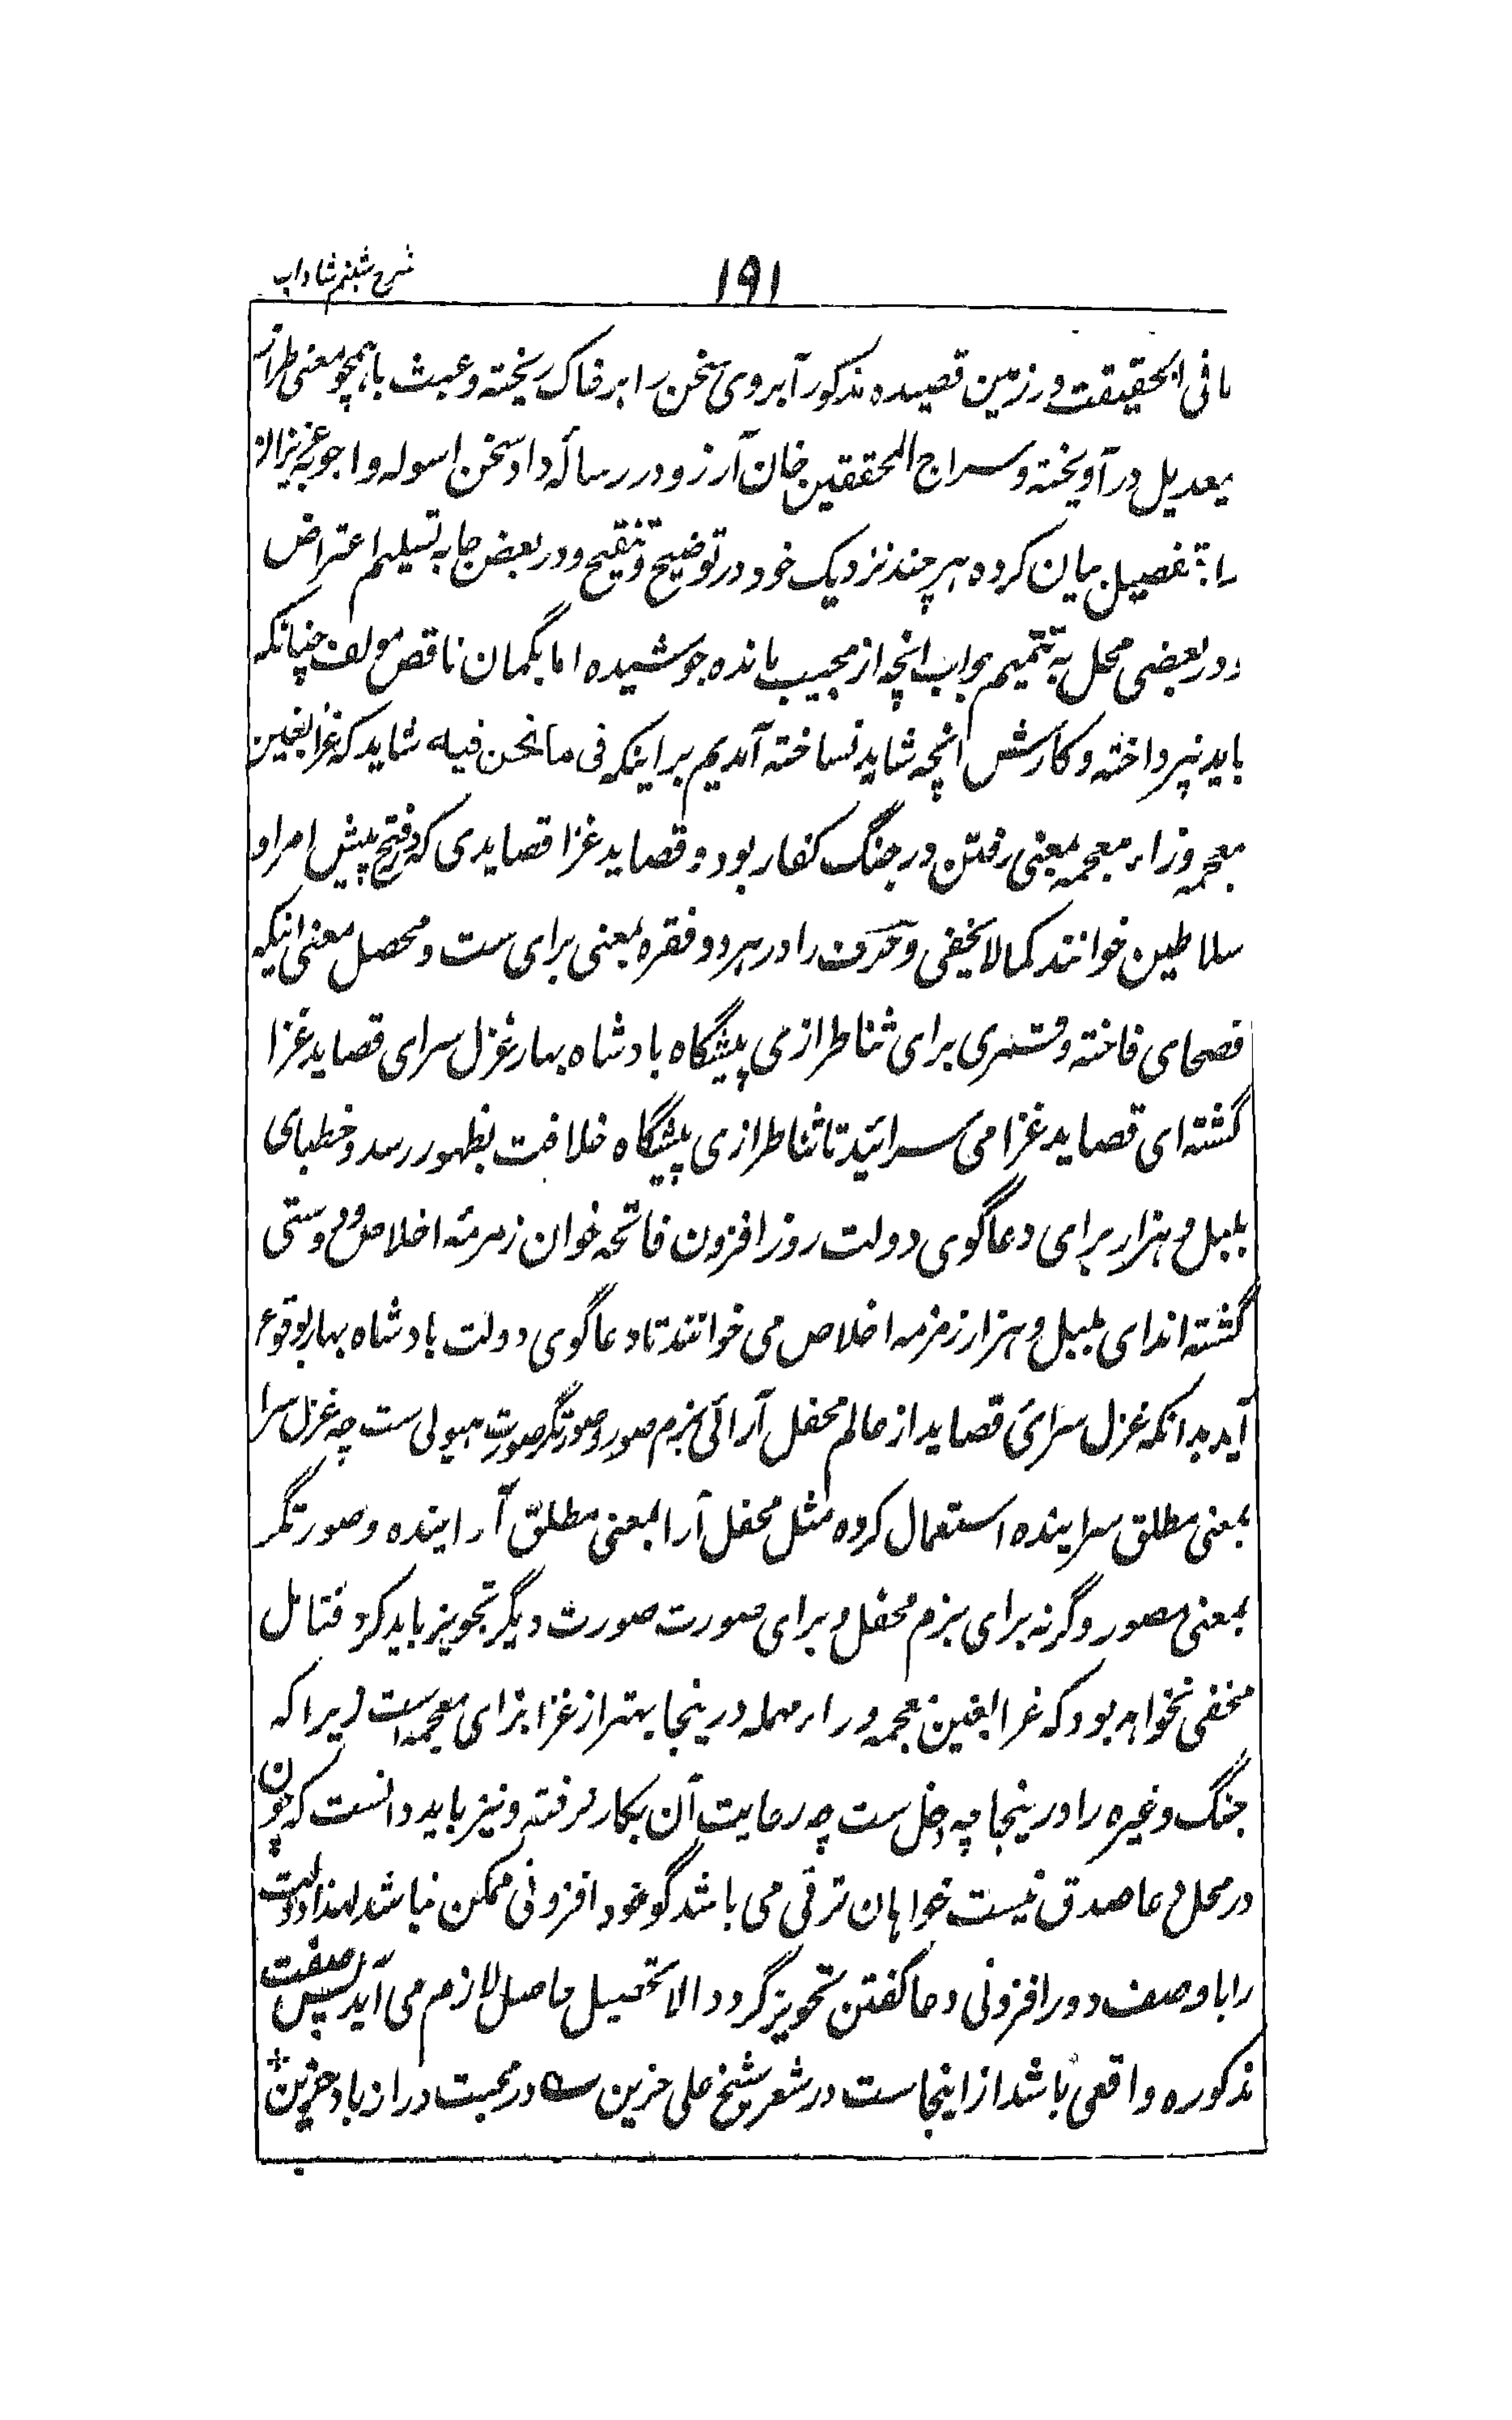 ۱۹۱
شرح شبنم شاداب
مافی الحقیقت در زمین قصیده مذکور آبروی سخن را بر خاک ریخته و عبث با همچو معنی طراز
بیعدیل در آویخته و سراج المحققین خان آرزو در رساله داد سخن اسوله و اجوبه عزیزان
را بتفصیل بیان کرده هر چند نزدیک خود در توضیح و تنقیح و در بعض جا به تسلیم اعتراض
و در بعضی محل به تتمیم جواب انچه از مجیب مانده جوشیده اما بگمان ناقص مولف چنانکه
باید نپرداخته و کارش انچه شاید نساخته آمدیم بر اینکه فی ما نحن فیه شاید که غزا بغین
معجمه وزاء معجمه بمعنی رفتن در جنگ کفار بود و قصاید غزا قصایدی که در فتح پیش امرا و
سلاطین خوانند کما لا یخفی و حرف را در هر دو فقره بمعنی برای ست و محصل معنی اینکه
فصحای فاخته و قمری برای ثنا طرازی پیشگاه بادشاه بهار غزل سرای قصاید غزا
گشته ای قصاید غزا می سرائید تا ثنا طرازی پیشگاه خلافت بظهور رسد و خطبای
بلبل و هزار برای دعاگوی دولت روز افزون فاتحه خوان زمزمه اخلاص و دوستی
گشته اند ای بلبل و هزار زمزمه اخلاص می خوانند تا دعاگوی دولت بادشاه بهار بوقوع
آید بدانکه غزل سرائ قصاید از عالم محفل آرائی بزم صور و صورتگر صورت هیولی ست چه غزل سرا
بمعنی مطلق سراینده استعمال کرده مثل محفل آرا بمعنی مطلق آراینده و صورتگر
بمعنی مصور وگرنه برای بزم محفل و برای صورت صورت دیگر تجویز باید کرد فتامل
مخفی نخواهد بود که غرا بغین معجمه و راء مهمله درینجا بهتر از غزا بزای معجمه است زیرا که
جنگ وغیره را درینجا چه دخل ست چه رعایت آن بکار نرفته و نیز باید دانست که چون
در محل دعا صدق نیست خواهان ترقی می باشد گو خود افزونی ممکن نباشد لهذا دولت
را با وصف دور افزونی دعا گفتن تجویز گردد الا تحصیل حاصل لازم می آید پس صفت
مذکوره واقعی باشد از اینجاست در شعر شیخ علی حزین ؎ در محبت دراز باد حزین